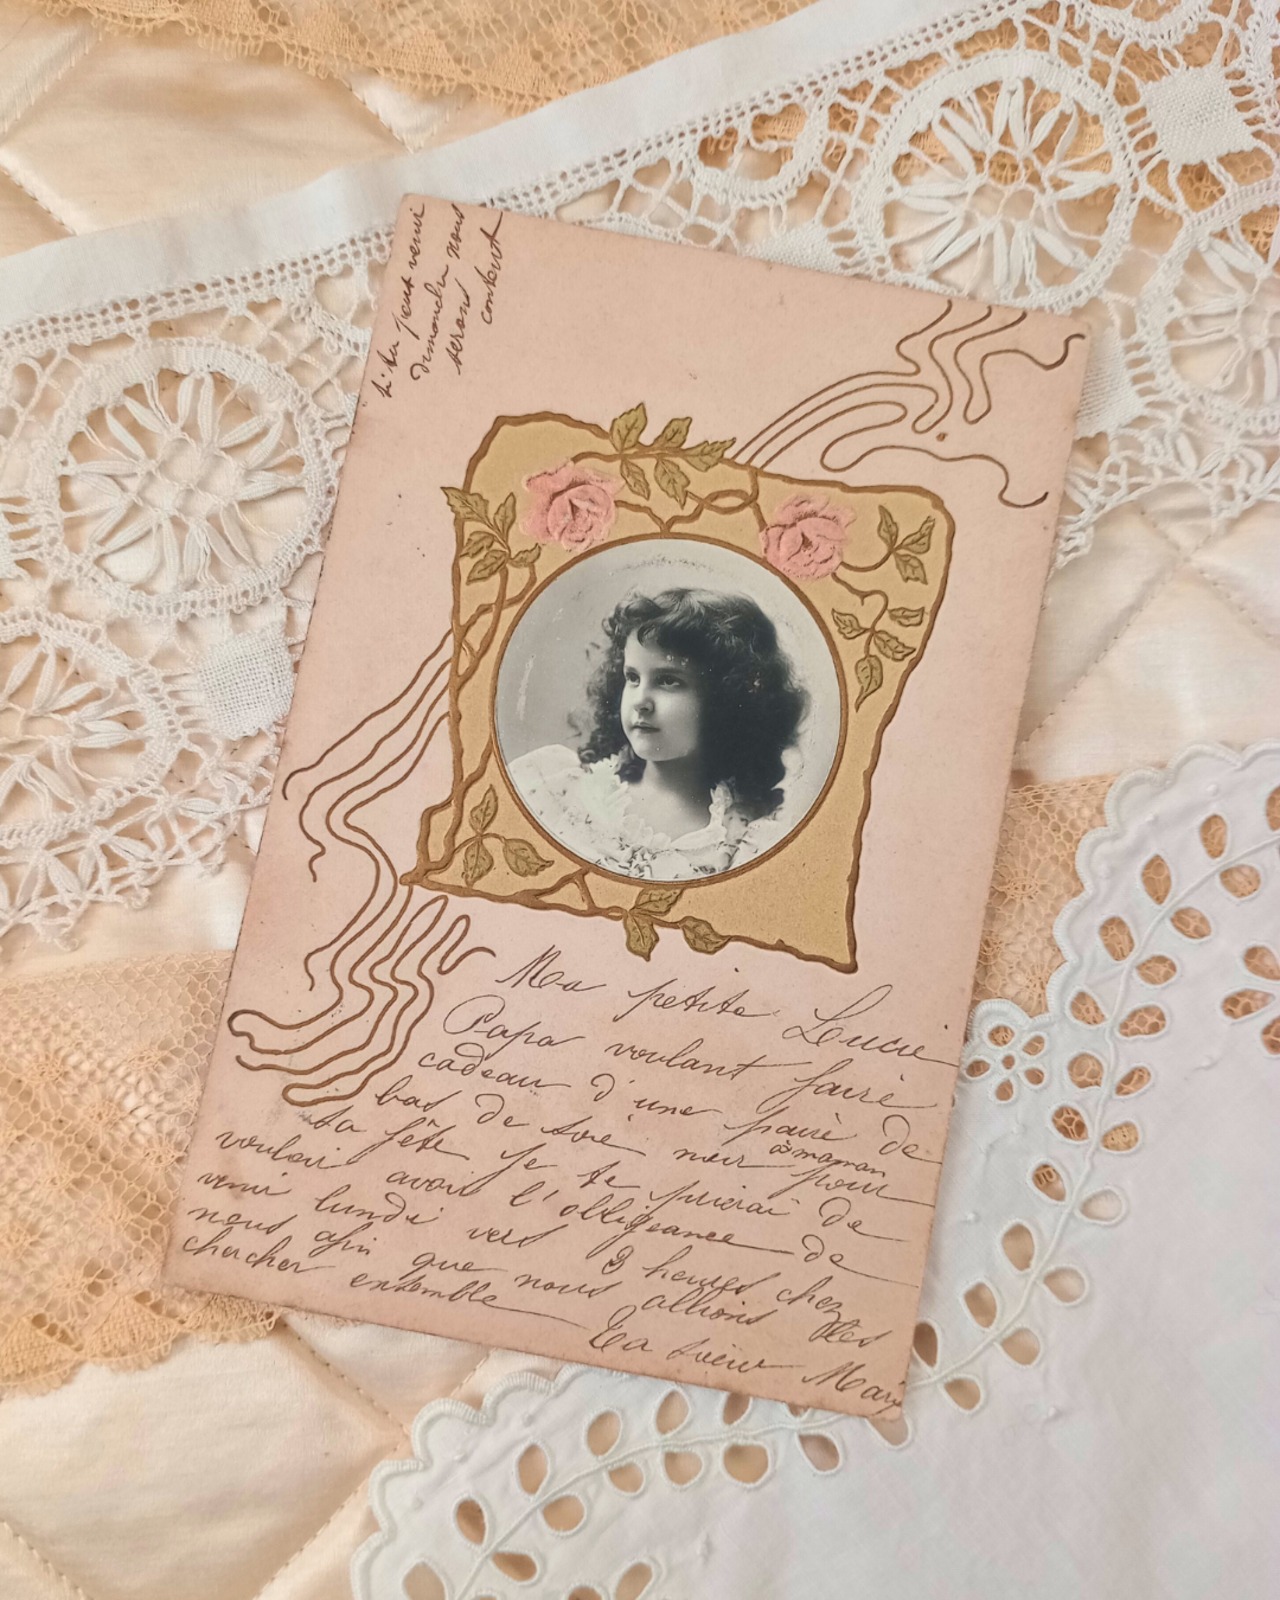 si tu peut venir
dimanche nous
serons
content
Ma petite Lucie
Papa voulant faire
cadeau d'une paire de
bas de soie noir à maman pour
sa fête je te prierai de
vouloir avoir l'obligeance de
venir lundi vers 3 heures chez
nous afin que nous allions les
chercher ensemble
Ta sœur Mary